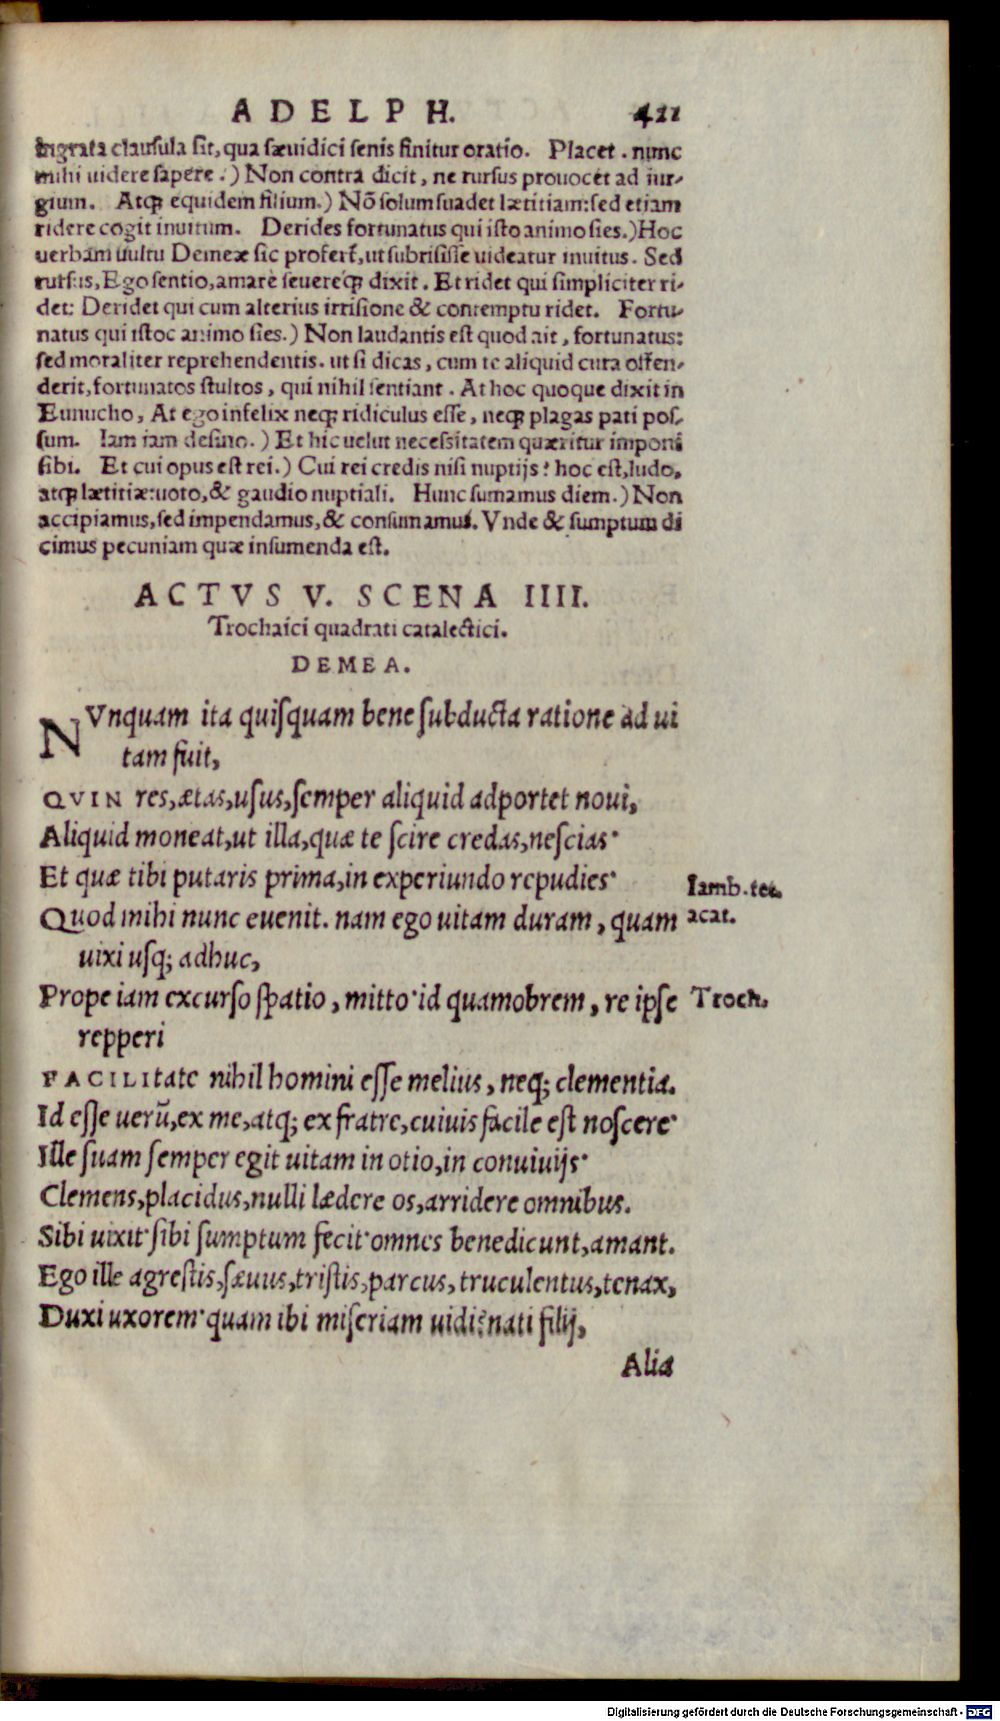 ADELPH. 421
ingrata clausula sit, qua sæuidici senis finitur oratio. Placet. nunc
mihi uidere sapere.) Non contra dicit, ne rursus prouocet ad iur-
gium. Atq; equidem filium.) Nõ solum suadet lætitiam: sed etiam
ridere cogit inuitum. Derides fortunatus qui isto animo sies.) Hoc
uerbam uultu Demeæ sic profert, ut subrisisse uideatur inuitus. Sed
rursus, Ego sentio, amare seuereq; dixit. Et ridet qui simpliciter ri-
det: Deridet qui cum alterius irrisione & contemptu ridet. Fortu-
natus qui istoc animo sies.) Non laudantis est quod ait, fortunatus:
sed moraliter reprehendentis. ut si dicas, cum te aliquid cura offen-
derit, fortunatos stultos, qui nihil sentiant. At hoc quoque dixit in
Eunucho, At ego infelix neq; ridiculus esse, neq; plagas pati pos-
sum. Iam iam desino.) Et hic uelut necessitatem quæritur imponi
sibi. Et cui opus est rei.) Cui rei credis nisi nuptijs? hoc est, ludo,
atq; lætitiæ: uoto, & gaudio nuptiali. Hunc sumamus diem.) Non
accipiamus, sed impendamus, & consumamus. Vnde & sumptum di
cimus pecuniam quæ insumenda est.
ACTVS V. SCENA IIII.
Trochaici quadrati catalectici.
DEMEA.
NVnquam ita quisquam bene subducta ratione ad ui
tam fuit,
QVIN res, ætas, usus, semper aliquid adportet noui,
Aliquid moneat, ut illa, quæ te scire credas, nescias·
Et quæ tibi putaris prima, in experiundo repudies·
Iamb. tet.
Quod mihi nunc euenit. nam ego uitam duram, quam
acat.
uixi usq; adhuc,
Prope iam excurso spatio, mitto· id quamobrem, re ipse
Troch.
repperi
FACILItate nihil homini esse melius, neq; clementia.
Id esse uerũ, ex me, atq; ex fratre, cuiuis facile est noscere·
Ille suam semper egit uitam in otio, in conuiuijs·
Clemens, placidus, nulli lædere os, arridere omnibus.
Sibi uixit· sibi sumptum fecit· omnes benedicunt, amant.
Ego ille agrestis, sæuus, tristis, parcus, truculentus, tenax,
Duxi uxorem· quam ibi miseriam uidi? nati filij,
Alia
Digitalisierung gefördert durch die Deutsche Forschungsgemeinschaft - DFG